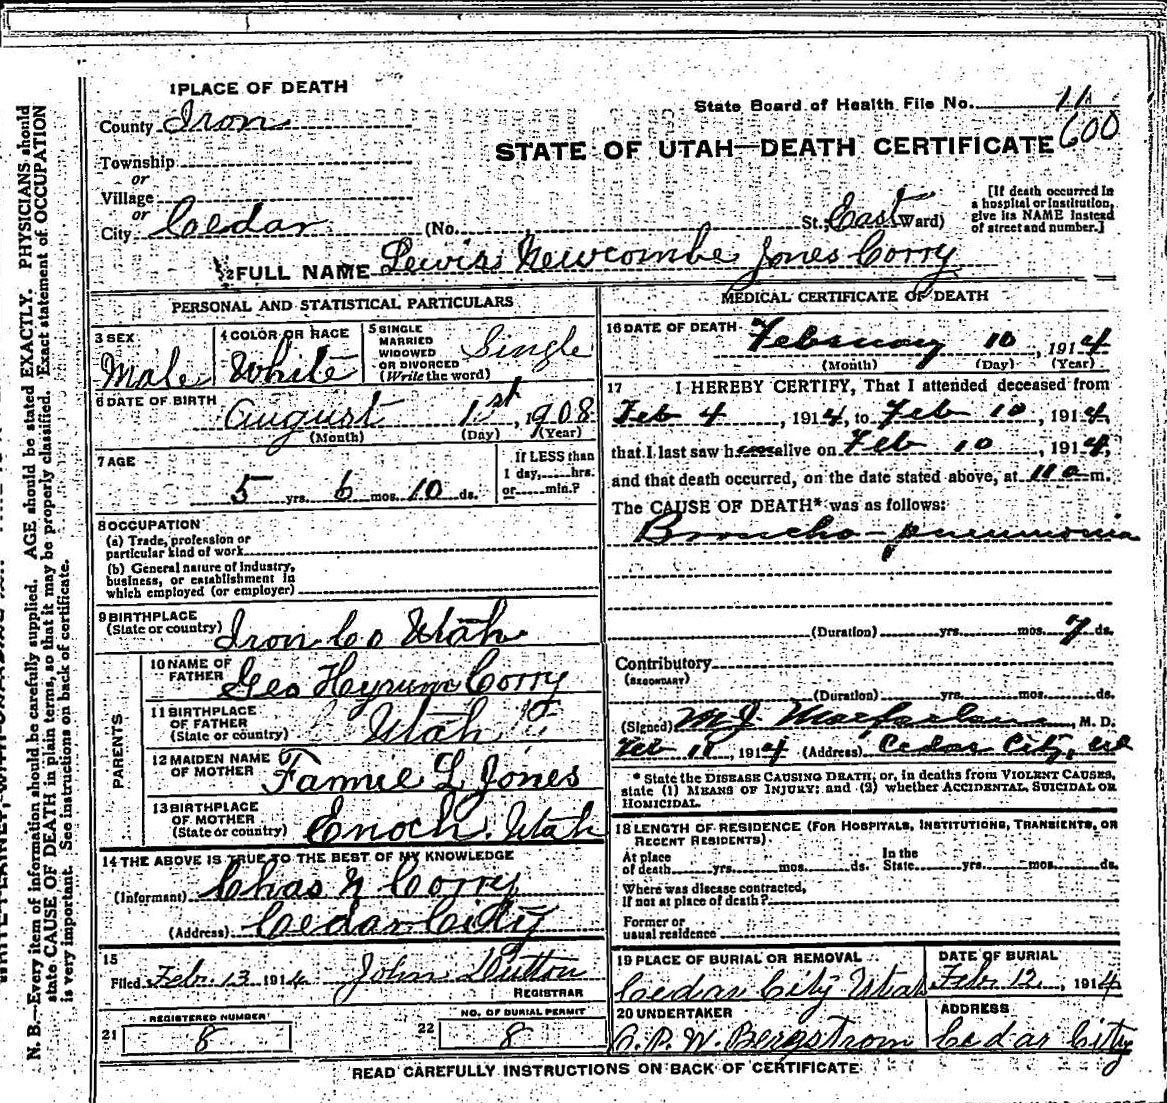 1 PLACE OF DEATH
State Board of Health File No. 11
County Iron
600
STATE OF UTAH—DEATH CERTIFICATE
Township
or
Village
or
City Cedar (No. St., East Ward)
[If death occurred in
a hospital or institution,
give its NAME instead
of street and number.]
2 FULL NAME Lewis Newcombe Jones Corry
PERSONAL AND STATISTICAL PARTICULARS
3 SEX
Male
4 COLOR OR RACE
White
5 SINGLE
MARRIED
WIDOWED
OR DIVORCED
(Write the word)
Single
6 DATE OF BIRTH
August 1st, 1908
(Month) (Day) (Year)
7 AGE
5 yrs. 6 mos. 10 ds.
If LESS than
1 day, hrs.
or min.?
8 OCCUPATION
(a) Trade, profession or
particular kind of work
(b) General nature of industry,
business, or establishment in
which employed (or employer)
9 BIRTHPLACE
(State or country) Iron Co Utah
PARENTS
10 NAME OF
FATHER Geo Hyrum Corry
11 BIRTHPLACE
OF FATHER
(State or country) Utah
12 MAIDEN NAME
OF MOTHER Fannie L Jones
13 BIRTHPLACE
OF MOTHER
(State or country) Enoch, Utah
14 THE ABOVE IS TRUE TO THE BEST OF MY KNOWLEDGE
(Informant) Chas Corry
(Address) Cedar City
15
Filed Feb. 13 1914 John Dutton
REGISTRAR
21 REGISTERED NUMBER
8
22 NO. OF BURIAL PERMIT
8
MEDICAL CERTIFICATE OF DEATH
16 DATE OF DEATH
February 10, 1914
(Month) (Day) (Year)
17 I HEREBY CERTIFY, That I attended deceased from
Feb 4, 1914, to Feb 10, 1914,
that I last saw h alive on Feb 10, 1914,
and that death occurred, on the date stated above, at 11 a m.
The CAUSE OF DEATH* was as follows:
Broncho-pneumonia
(Duration) yrs. mos. 7 ds.
Contributory
(SECONDARY)
(Duration) yrs. mos. ds.
(Signed) M. J. Macfarlane, M. D.
Feb 11, 1914 (Address) Cedar City,
* State the DISEASE CAUSING DEATH; or, in deaths from VIOLENT CAUSES,
state (1) MEANS OF INJURY; and (2) whether ACCIDENTAL, SUICIDAL OR
HOMICIDAL.
18 LENGTH OF RESIDENCE (FOR HOSPITALS, INSTITUTIONS, TRANSIENTS, OR
RECENT RESIDENTS).
At place
of death yrs. mos. ds.
In the
State yrs. mos. ds.
Where was disease contracted,
if not at place of death?
Former or
usual residence
19 PLACE OF BURIAL OR REMOVAL
Cedar City Utah
DATE OF BURIAL
Feb. 12, 1914
20 UNDERTAKER
C. P. W. Bergstrom
ADDRESS
Cedar City
READ CAREFULLY INSTRUCTIONS ON BACK OF CERTIFICATE
N. B.—Every item of information should be carefully supplied. AGE should be stated EXACTLY. PHYSICIANS should
state CAUSE OF DEATH in plain terms, so that it may be properly classified. Exact statement of OCCUPATION
is very important. See instructions on back of certificate.